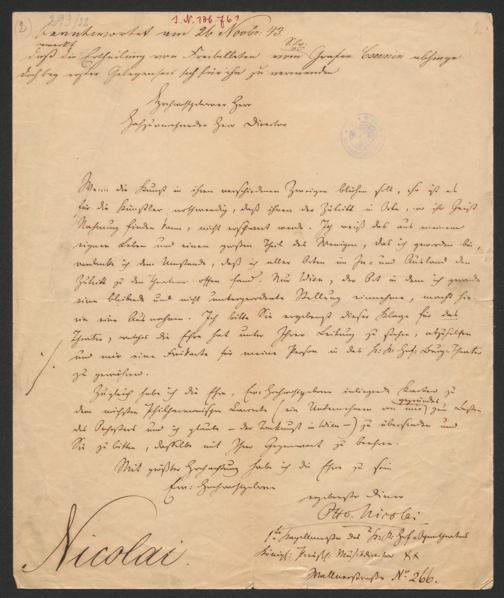 293/22
I.N. 136.761
beantwortet am 26 Novbr. 43.
daß die Ertheilung von Freibilletten vom Grafen Czernin abhänge
doch bey erster Gelegenheit sich für ihn zu verwenden
Hochwohlgeborner Herr
Hochzuverehrender Herr Director
Wenn die Kunst in ihren verschiedenen Zweigen blühen soll, so ist es
für die Künstler nothwendig, daß ihnen der Zutritt in Orte, wo ihr Geist
Nahrung finden kann, nicht erschwert werde. Ich weiß das aus meinem
eignen Leben und einen großen Theil des Wenigen, das ich geworden bin,
verdanke ich dem Umstande, daß ich aller Orten im In- und Ausland den
Zutritt zu den Theatern offen fand. Nur Wien, der Ort in dem ich gerade
eine bleibende und nicht untergeordnete Stellung einnehme, macht hie-
rin eine Ausnahme. Ich bitte Sie ergebenst dieser Klage für das
Theater, welches die Ehre hat unter Ihrer Leitung zu stehen, abzuhelfen
und mir eine Freikarte für meine Person in das K: K: Hof-Burg-Theater
zu gewähren.
Zugleich habe ich die Ehre, Ew: Hochwohlgeboren inliegende Karten zu
dem nächsten Philharmonischen Concerte (ein Unternehmen von mir gegründet, zum Besten
des Orchesters und ich glaube – der Tonkunst in Wien –) zu übersenden und
Sie zu bitten, dasselbe mit Ihrer Gegenwart zu beehren.
Mit größter Hochachtung habe ich die Ehre zu sein
Ew: Hochwohlgeboren
ergebenster Diener
Otto Nicolai
1ter Kapellmeister des K: K: Hof-Operntheaters
Königl: Preuß: Musikdirector
Wallnerstraße No 266.
Nicolai.